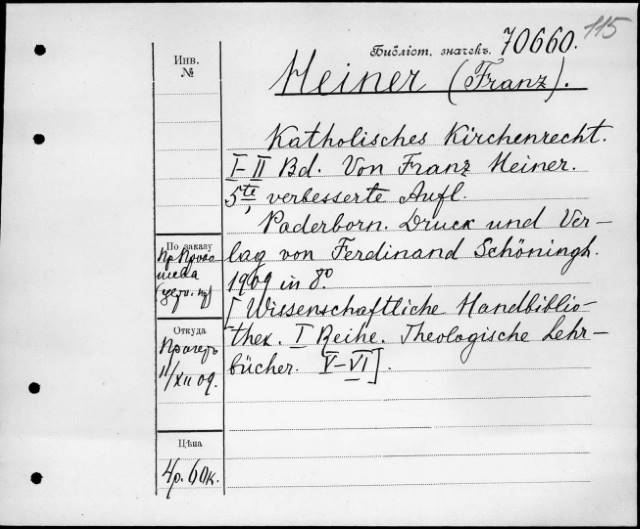 115
Библіот. значекъ. 70660.
Heiner (Franz).
Инв.
№
Katholisches Kirchenrecht.
I–II Bd. Von Franz Heiner.
5te, verbesserte Aufl.
Paderborn. Druck und Ver-
lag von Ferdinand Schöningh.
1909 in 8°.
[Wissenschaftliche Handbiblio-
thek. I Reihe. Theologische Lehr-
bücher. V–VI].
По заказу
Откуда
Прагеръ
11/XII 09.
Цѣна
4р. 60к.